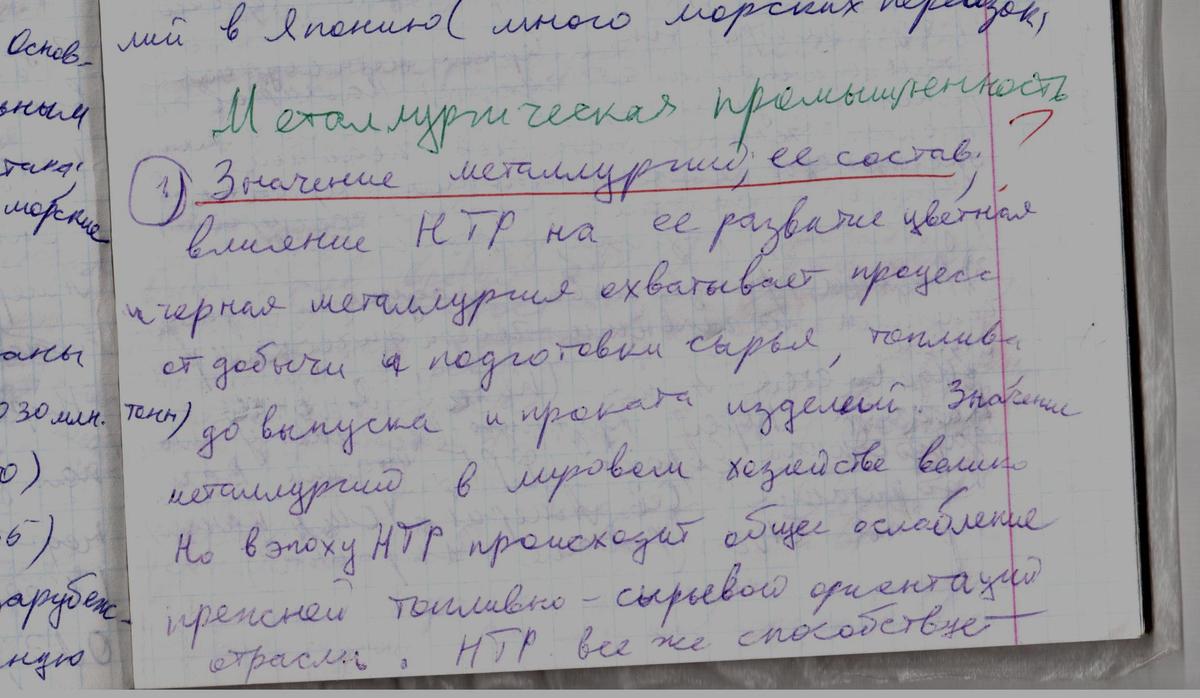 лий в Японию ( много морских перевозок,
Металлургическая промышленность
1) Значение металлургий, ее состав,
влияние НТР на ее развитие цветная
и черная металлургия охватывает процесс
от добычи и подготовки сырья, топлива
до выпуска и проката изделий. Значение
металлургий в мировом хозяйстве велико
Но в эпоху НТР происходит общее ослабление
прежней топливно-сырьевой ориентаций
отрасль. НТР все же способствует
Основ-
ьным
така:
морские
аны
030 млн. тонн)
0)
5)
арубеж-
ную